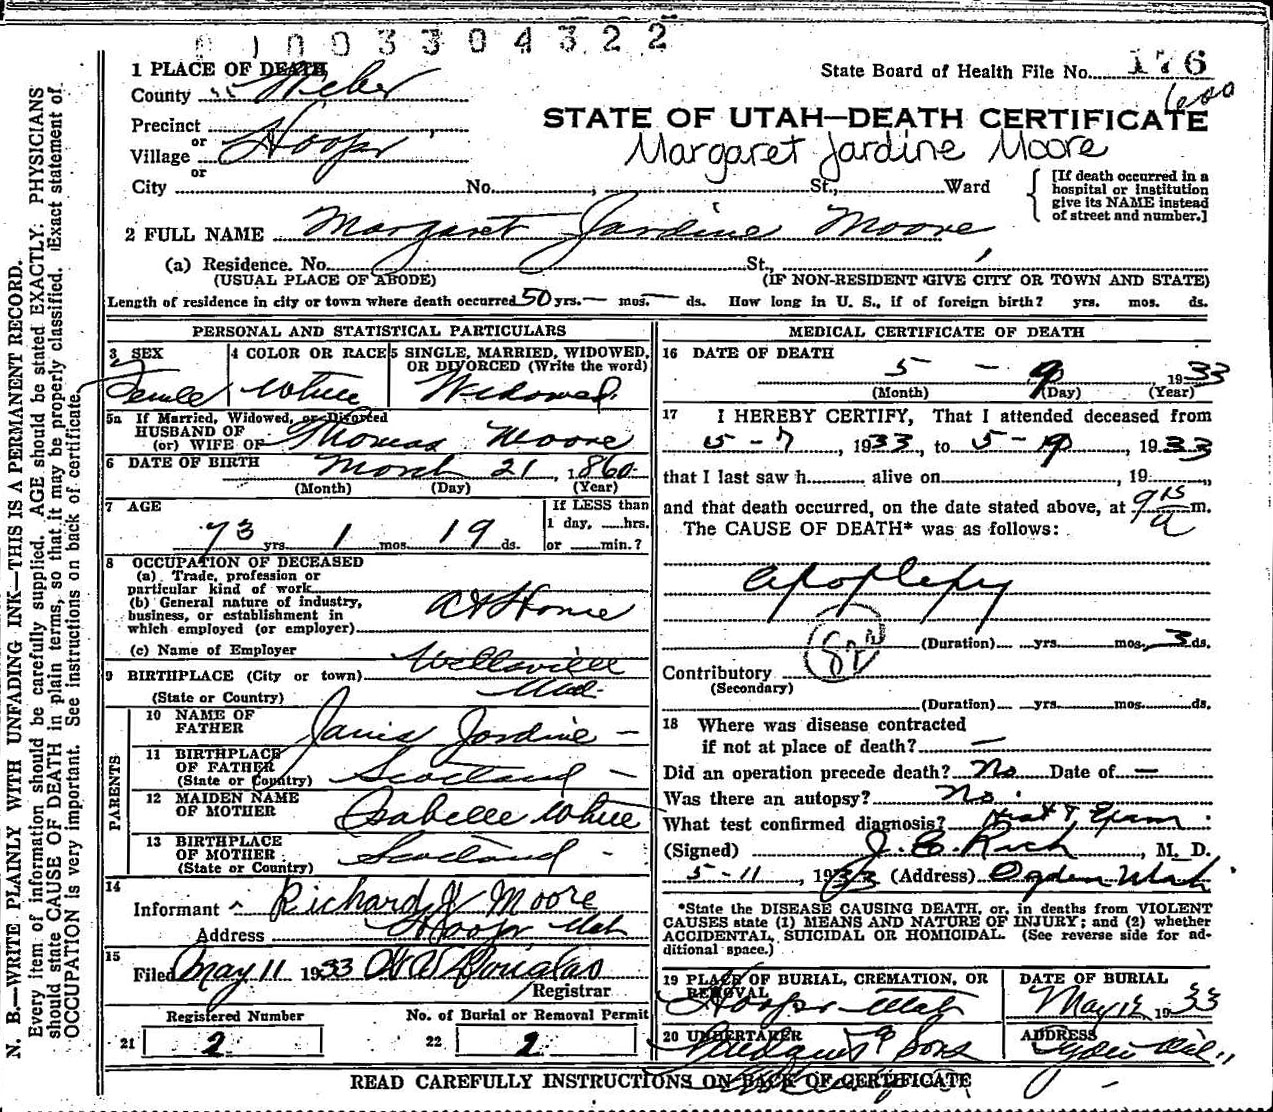 0 1 0 0 3 3 0 4 3 2 2
1 PLACE OF DEATH
State Board of Health File No. 176
County Weber
600
Precinct
or
Village Hooper
or
STATE OF UTAH—DEATH CERTIFICATE
Margaret Jardine Moore
City No. St., Ward
[If death occurred in a
hospital or institution
give its NAME instead
of street and number.]
2 FULL NAME Margaret Jardine Moore
(a) Residence. No. St.,
(USUAL PLACE OF ABODE) (IF NON-RESIDENT GIVE CITY OR TOWN AND STATE)
Length of residence in city or town where death occurred 50 yrs. — mos. — ds. How long in U. S., if of foreign birth? yrs. mos. ds.
PERSONAL AND STATISTICAL PARTICULARS
3 SEX
4 COLOR OR RACE
5 SINGLE, MARRIED, WIDOWED,
OR DIVORCED (Write the word)
Female White Widowed.
5a If Married, Widowed, or Divorced
HUSBAND OF
(or) WIFE OF Thomas Moore
6 DATE OF BIRTH March 21, 1860
(Month) (Day) (Year)
7 AGE
If LESS than
1 day, hrs.
or min.?
73 yrs. 1 mos. 19 ds.
8 OCCUPATION OF DECEASED
(a) Trade, profession or
particular kind of work
(b) General nature of industry,
business, or establishment in
which employed (or employer)
At Home
(c) Name of Employer
9 BIRTHPLACE (City or town) Wellsville
(State or Country) Utah
PARENTS
10 NAME OF
FATHER
Jardine —
11 BIRTHPLACE
OF FATHER
(State or Country)
Scotland —
12 MAIDEN NAME
OF MOTHER
Isabelle White
13 BIRTHPLACE
OF MOTHER
(State or Country)
Scotland -
14
Informant Richard Moore
Address Hooper Utah
15
Filed May 11 1933 Douglas
Registrar
Registered Number No. of Burial or Removal Permit
21 2 22 2
MEDICAL CERTIFICATE OF DEATH
16 DATE OF DEATH
5 - 9 1933
(Month) (Day) (Year)
17 I HEREBY CERTIFY, That I attended deceased from
5-7, 1933, to 5-9, 1933
that I last saw h alive on , 19 ,
and that death occurred, on the date stated above, at 9 15 a m.
The CAUSE OF DEATH* was as follows:
apoplexy
(Duration) yrs. mos. 3 ds.
82
Contributory
(Secondary)
(Duration) yrs. mos. ds.
18 Where was disease contracted
if not at place of death? —
Did an operation precede death? No Date of —
Was there an autopsy? No.
What test confirmed diagnosis? Exam
(Signed) J. C. Rich, M. D.
5-11, 1933 (Address) Ogden Utah
*State the DISEASE CAUSING DEATH, or, in deaths from VIOLENT
CAUSES state (1) MEANS AND NATURE OF INJURY; and (2) whether
ACCIDENTAL, SUICIDAL OR HOMICIDAL. (See reverse side for ad-
ditional space.)
19 PLACE OF BURIAL, CREMATION, OR
REMOVAL
Hooper Utah
DATE OF BURIAL
May 12 1933
20 UNDERTAKER
& Sons
ADDRESS
Ogden Utah
READ CAREFULLY INSTRUCTIONS ON BACK OF CERTIFICATE
N. B.—WRITE PLAINLY WITH UNFADING INK—THIS IS A PERMANENT RECORD.
Every item of information should be carefully supplied. AGE should be stated EXACTLY. PHYSICIANS
should state CAUSE OF DEATH in plain terms, so that it may be properly classified. Exact statement of
OCCUPATION is very important. See instructions on back of certificate.